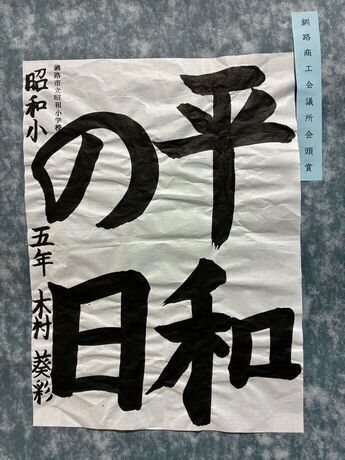 釧路商工会議所会頭賞
平和
の日
釧路市立昭和小学校
昭和小 五年 木村 葵彩